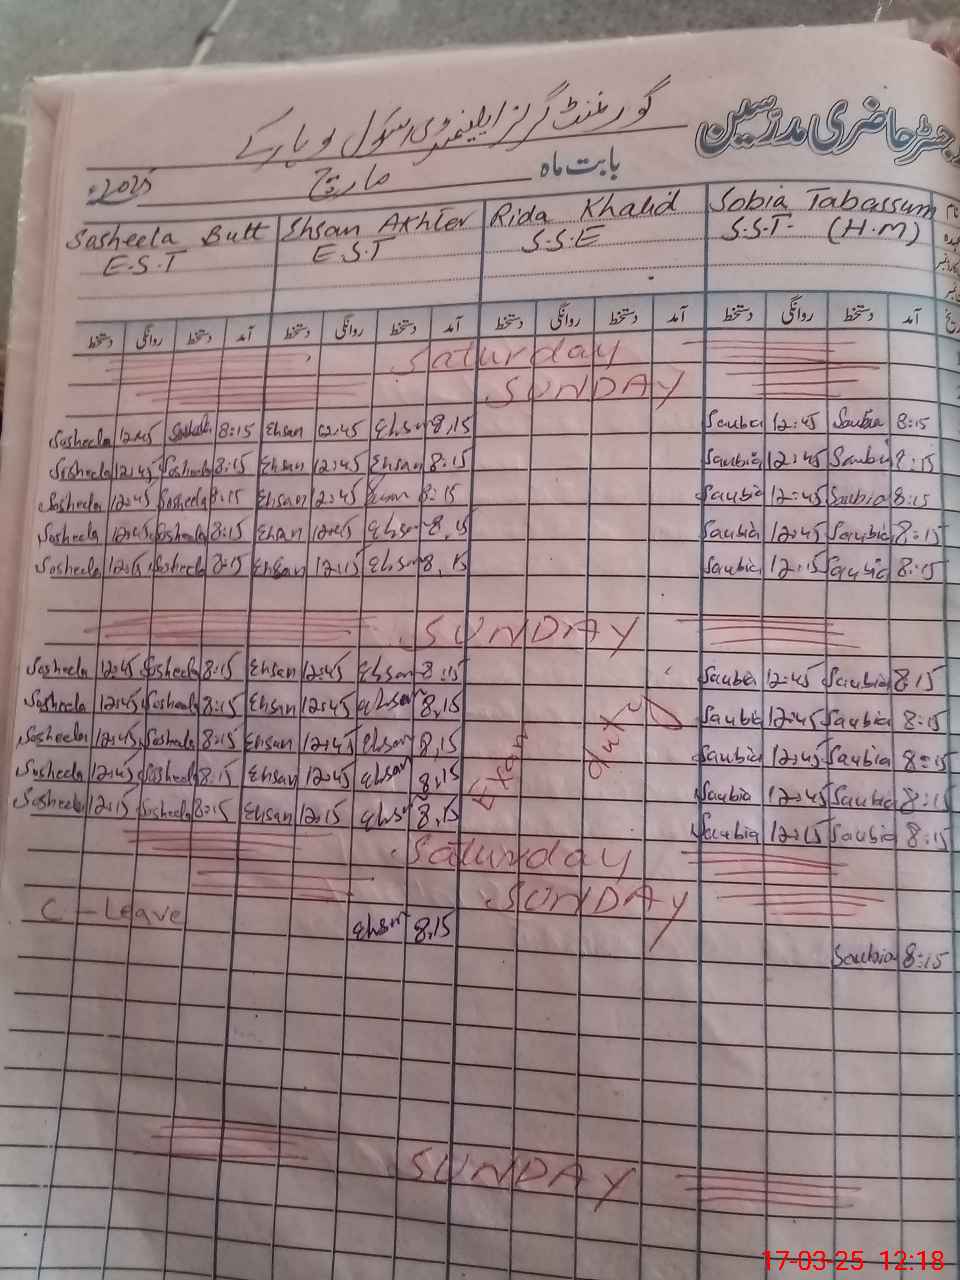 رجسٹر حاضری مدرسین
گورنمنٹ گرلز ایلیمنٹری سکول لوہارکے
بابت ماہ مارچ 2025ء
Sasheela Butt Ehsan Akhter Rida Khalid Sobia Tabassum
E.S.T E.S.T S.S.E S.S.T. (H.M)
دستخط روانگی دستخط آمد دستخط روانگی دستخط آمد دستخط روانگی دستخط آمد دستخط روانگی دستخط آمد
Saturday
SUNDAY
Sasheela 12:45 Sasheela 8:15 Ehsan 12:45 Ehsan 8,15 Saubia 12:45 Saubia 8:15
Sasheela 12:45 Sasheela 8:15 Ehsan 12:45 Ehsan 8:15 Saubia 12:45 Saubia 8:15
Sasheela 12:45 Sasheela 8:15 Ehsan 12:45 Ehsan 8:15 Saubia 12:45 Saubia 8:15
Sasheela 12:45 Sasheela 8:15 Ehsan 12:45 Ehsan 8,15 Saubia 12:45 Saubia 8:15
Sasheela 12:15 Sasheela 8:15 Ehsan 12:15 Ehsan 8,15 Saubia 12:15 Saubia 8:15
SUNDAY
Sasheela 12:45 Sasheela 8:15 Ehsan 12:45 Ehsan 8:15 Saubia 12:45 Saubia 8:15
Sasheela 12:45 Sasheela 8:15 Ehsan 12:45 Ehsan 8,15 Saubia 12:45 Saubia 8:15
Sasheela 12:45 Sasheela 8:15 Ehsan 12:45 Ehsan 8,15 Saubia 12:45 Saubia 8:15
Sasheela 12:45 Sasheela 8:15 Ehsan 12:45 Ehsan 8,15 Saubia 12:45 Saubia 8:15
Sasheela 12:15 Sasheela 8:15 Ehsan 12:15 Ehsan 8,15 Saubia 12:15 Saubia 8:15
Exam duty
Saturday
SUNDAY
C - Leave Ehsan 8,15 Saubia 8:15
SUNDAY
17-03-25 12:18